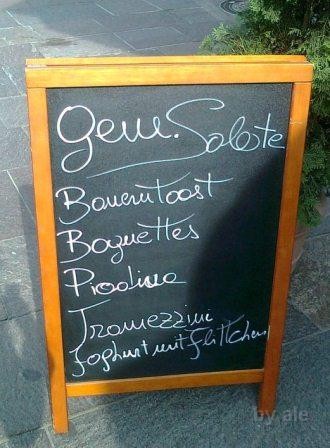 Gem. Salate
Bauerntoast
Baguettes
Piadina
Tramezzini
Joghurt mit Früchten
by ale